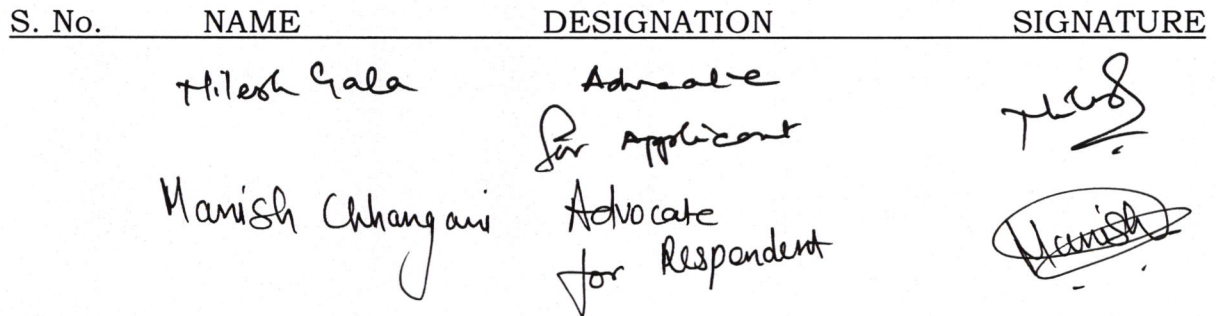 S. No. NAME DESIGNATION SIGNATURE
Nilesh Gala Advocate
for Applicant
Manish Chhangani Advocate Manish
for Respondent